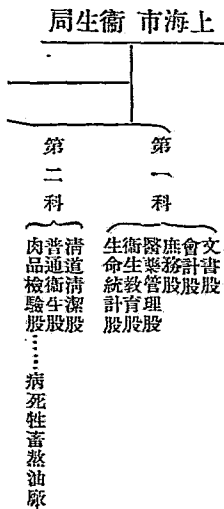 上海市 衞生局
第一科
文書股
會計股
庶務股
醫藥管理股
衞生教育股
生命統計股
第二科
清道清潔股
普通衞生股
肉品檢驗股……病死牲畜熬油廠